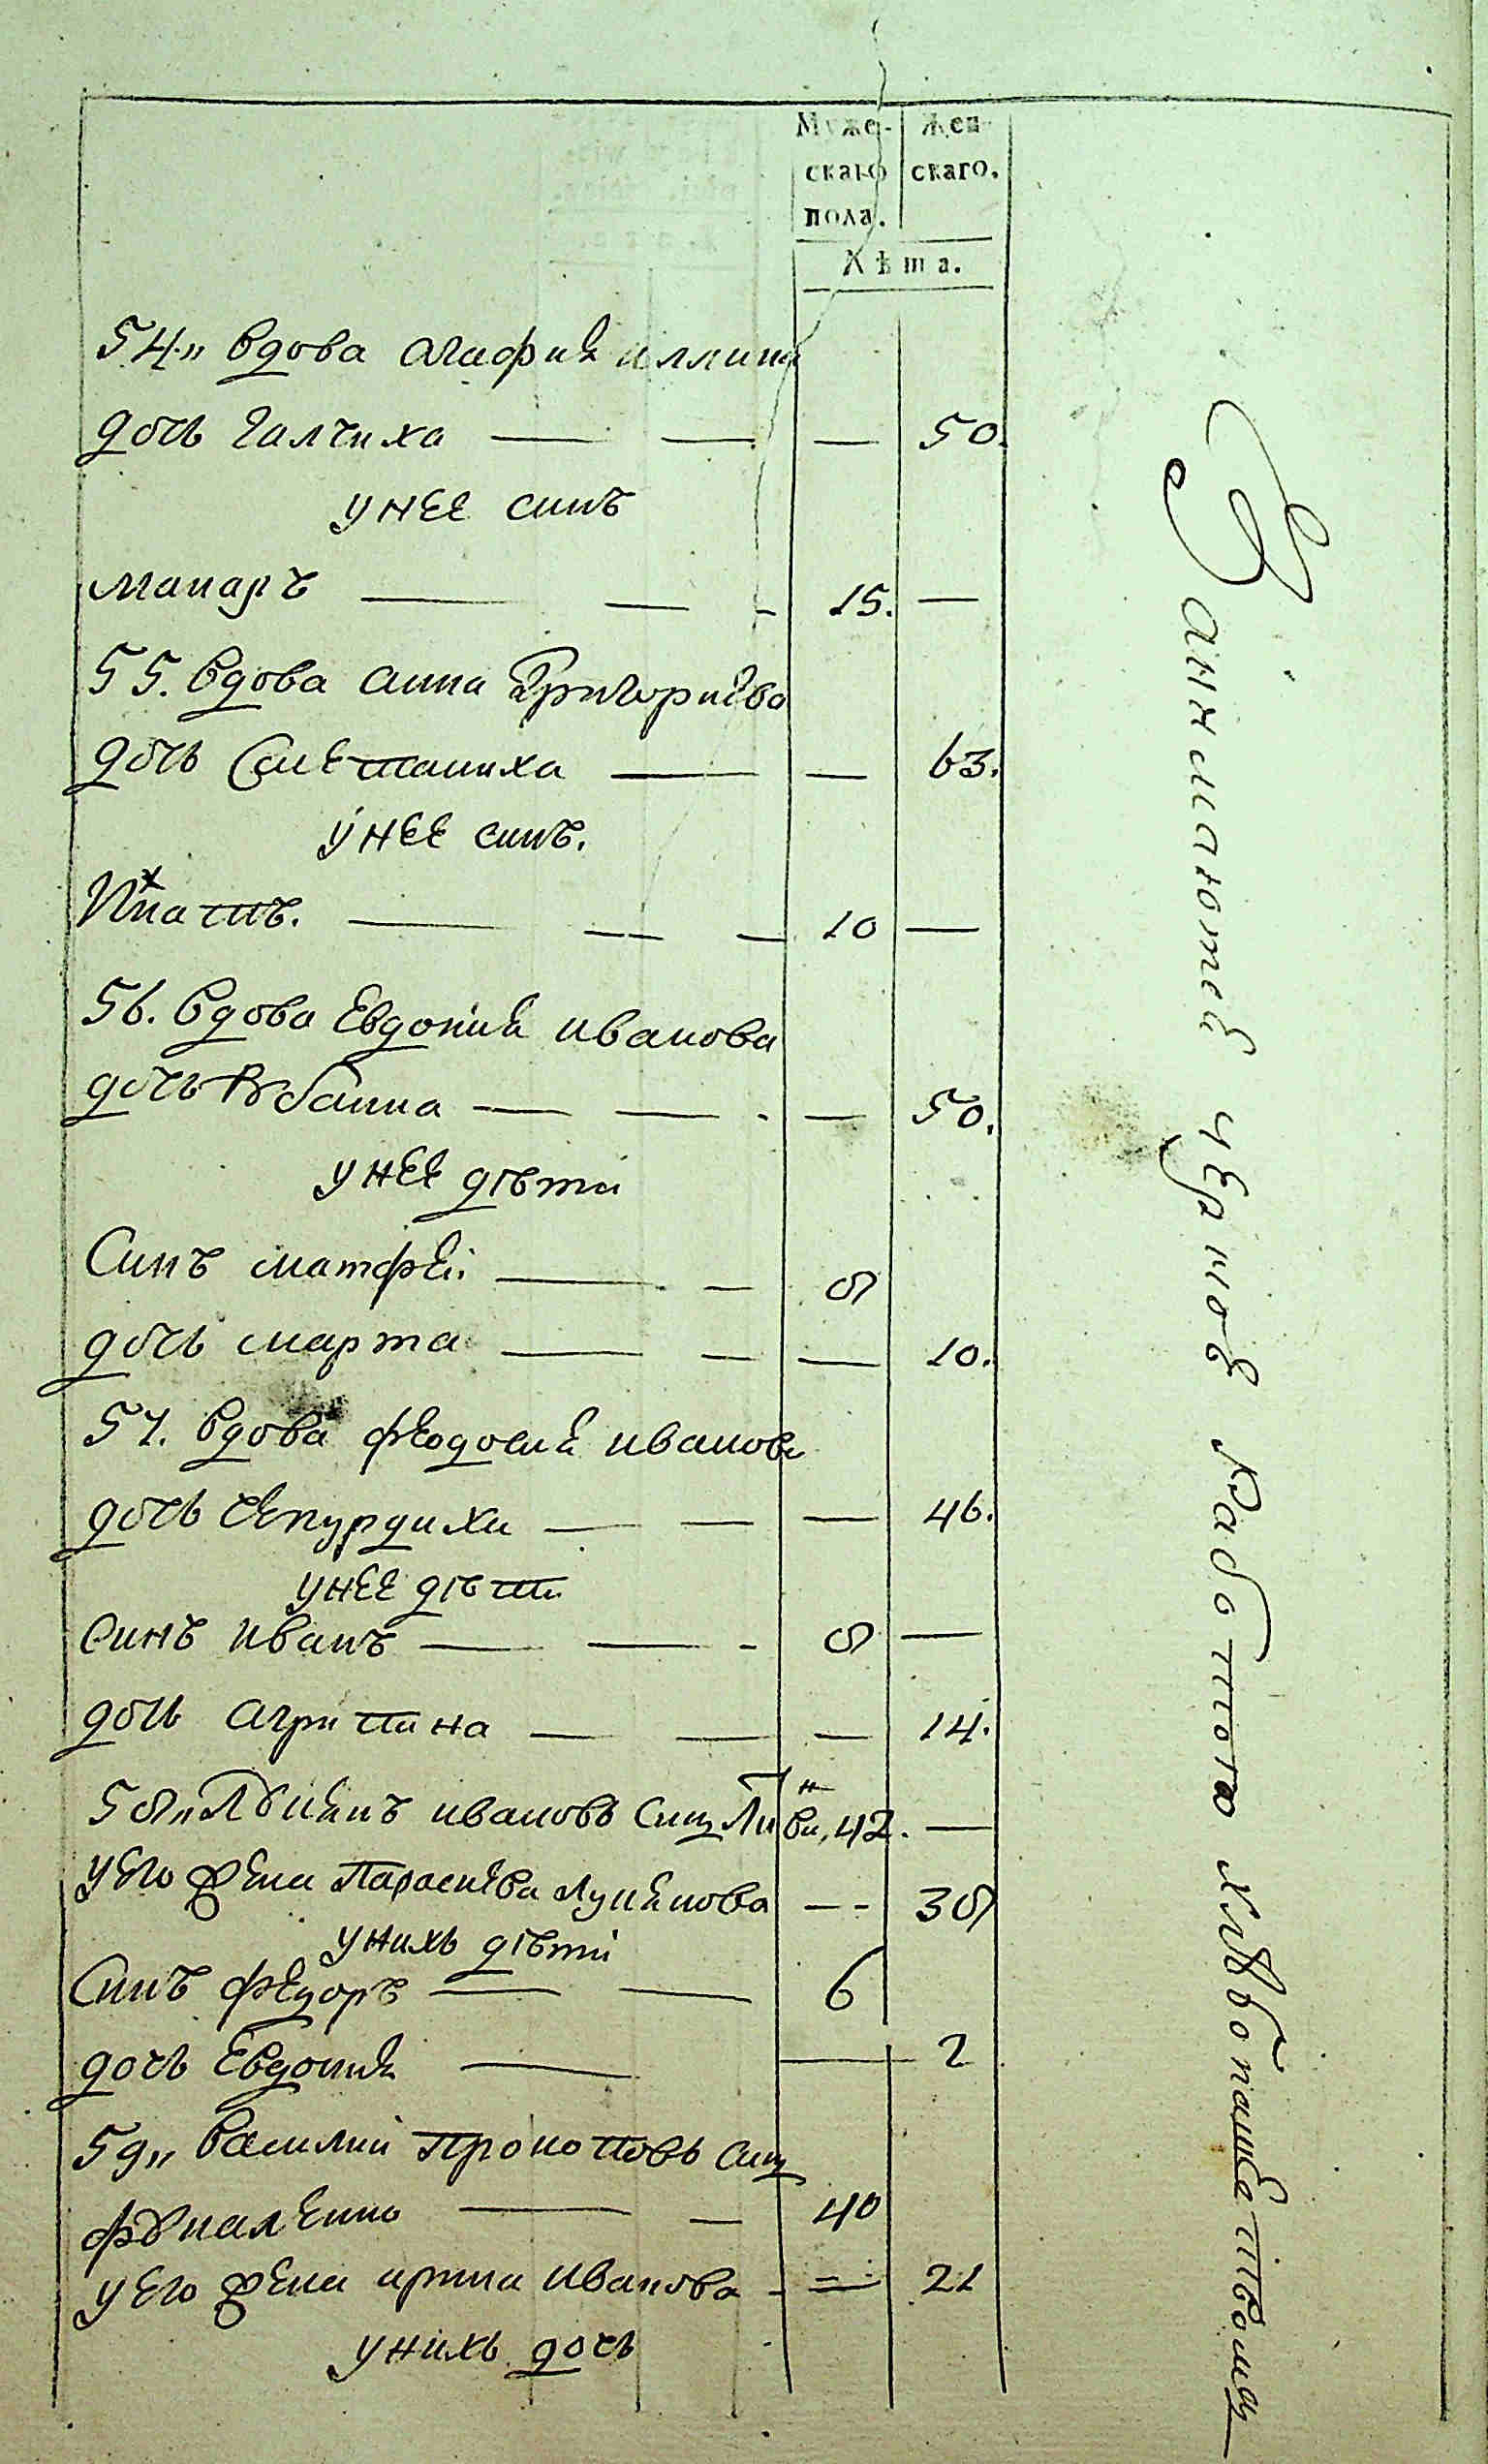 Муже- Жен-
скаго скаго.
пола.
Лѣта.
54„ вдова агафия иллина
дочь галчиха — — — 50.
унее синъ
макаръ — — - 15. —
55. вдова анна григориева
дочь Сметаниха — — 63.
унее синъ.
Игнатъ. — — — 10 —
56. вдова Евдокия иванова
дочь — — - — 50.
унее дѣти
Синъ матфей — — 8
дочь марта — — — 10.
57. вдова феодосия иванова
дочь чепурдиха — — — 46.
унее дѣти
синъ иванъ — — - 8 —
дочь агрипина — — — 14.
58„ Лукянъ ивановъ синъ 42. —
уего жена Параскева лукянова — - 38
унихъ дѣти
Синъ федоръ — — 6
дочь Евдокия — — 2
59„ василий Прокоповъ синъ
— — 40
уего жена ирина иванова - = 21
унихъ дочь
Занимаютсе черноѣ работою хлѣбопашествомъ